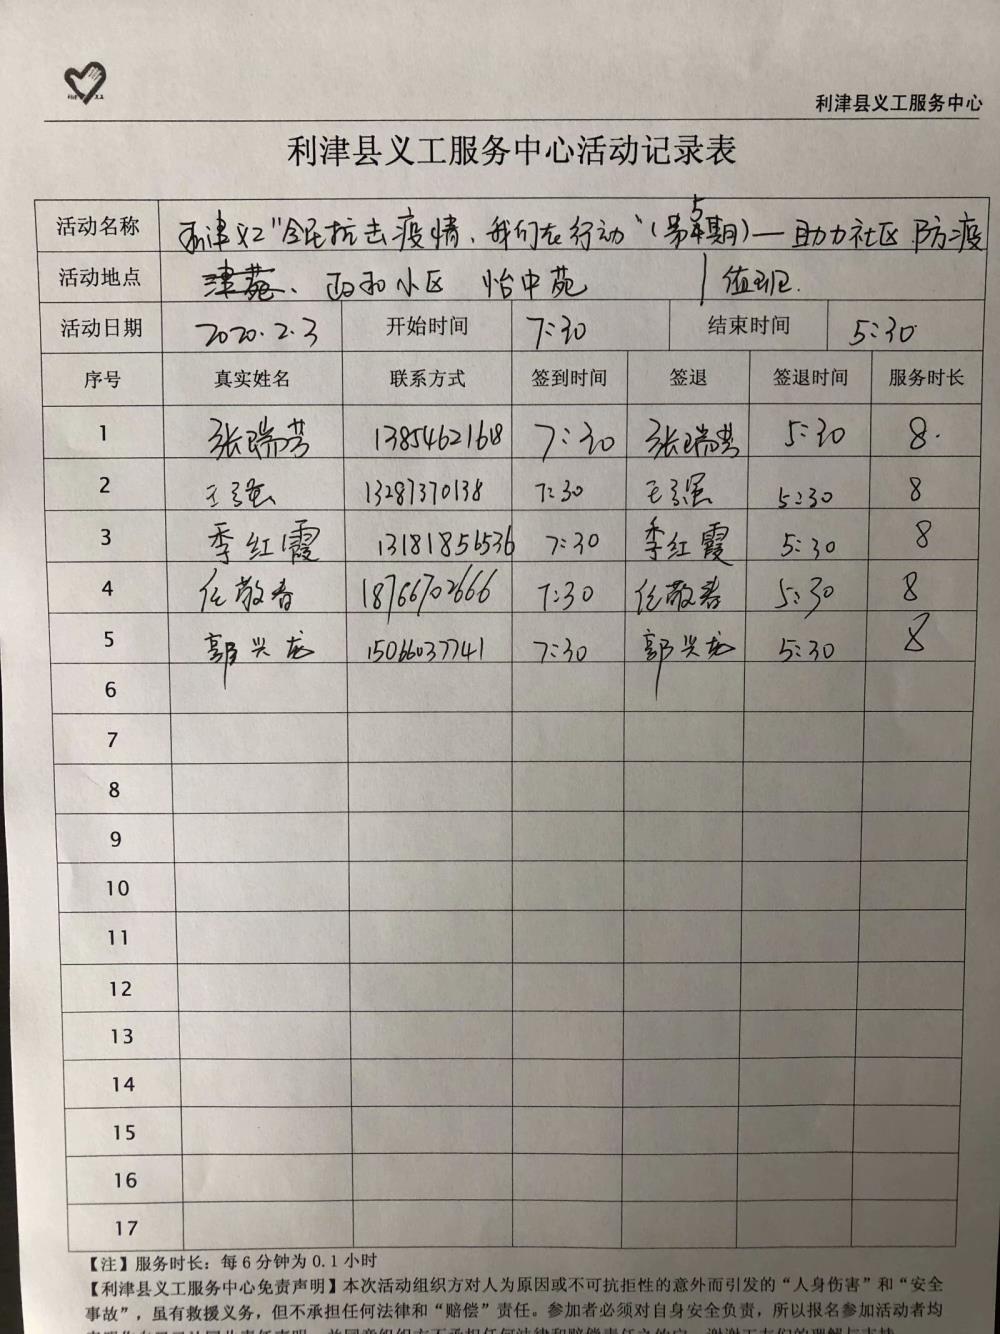 利津县义工服务中心
利津县义工服务中心活动记录表
活动名称 利津义工"全民抗击疫情、我们在行动"(第5期)—助力社区防疫
活动地点 津苑、西和小区 怡中苑 值班.
活动日期 2020.2.3 开始时间 7:30 结束时间 5:30
序号 真实姓名 联系方式 签到时间 签退 签退时间 服务时长
1 张瑞芳 13854621618 7:30 张瑞芳 5:30 8.
2 王强 13287370138 7:30 王强 5:30 8
3 季红霞 13181856536 7:30 季红霞 5:30 8
4 任敬春 18766702666 7:30 任敬春 5:30 8
5 郭兴龙 15066037741 7:30 郭兴龙 5:30 8
6
7
8
9
10
11
12
13
14
15
16
17
【注】服务时长：每 6 分钟为 0.1 小时
【利津县义工服务中心免责声明】本次活动组织方对人为原因或不可抗拒性的意外而引发的“人身伤害”和“安全
事故”，虽有救援义务，但不承担任何法律和“赔偿”责任。参加者必须对自身安全负责，所以报名参加活动者均